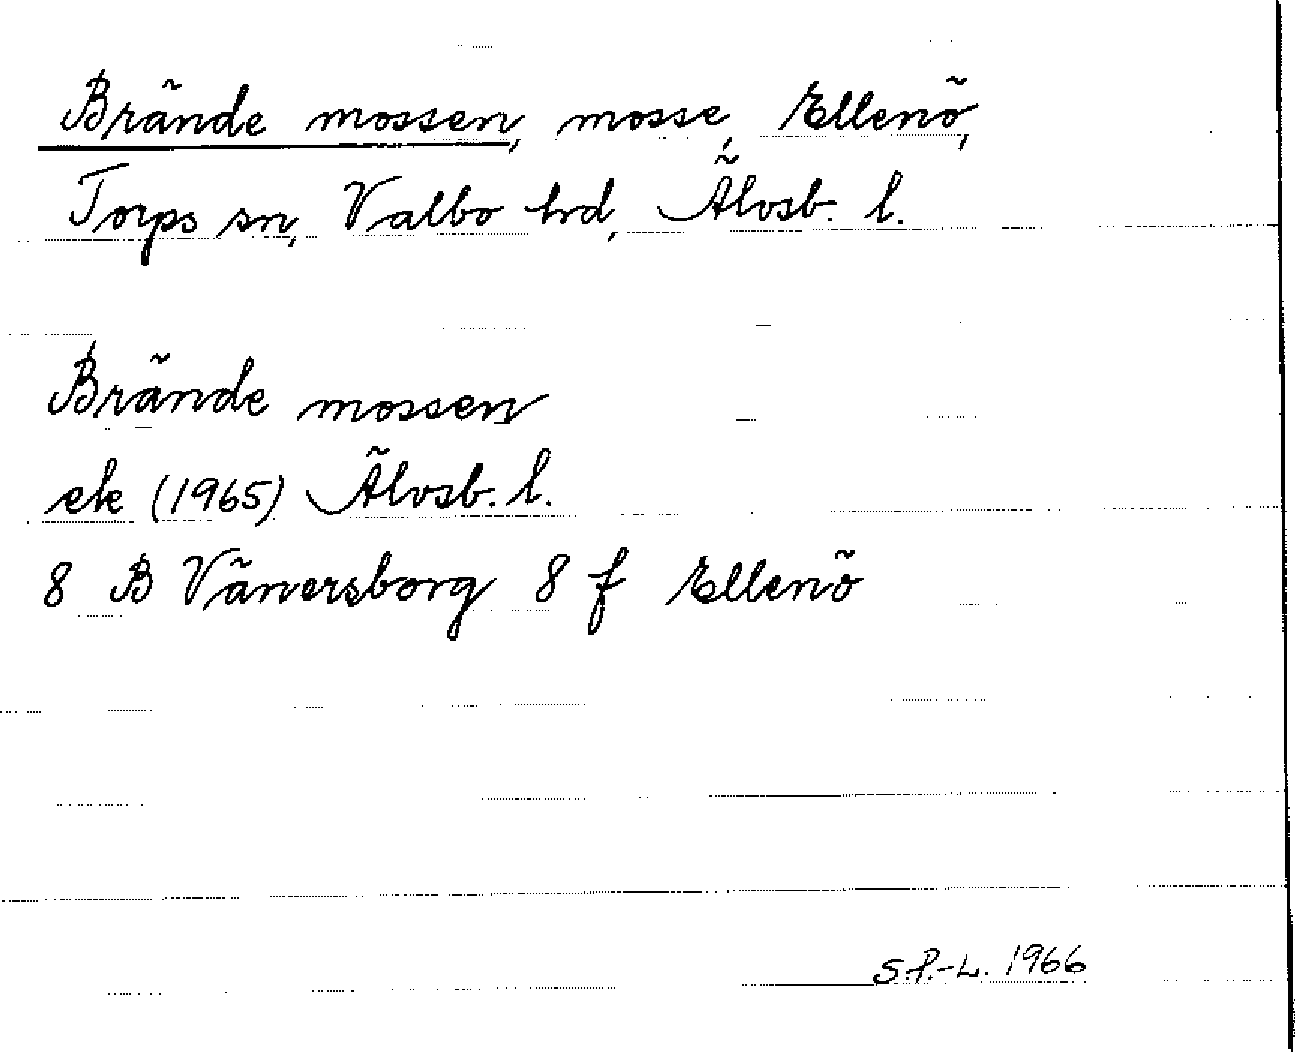 Brände mossen, mosse, Ellenö,
Torps sn, Valbo hrd, Älvsb. l.
Brände mossen
ek (1965) Älvsb. l.
8 B Vänersborg 8 f Ellenö
S.P.-L. 1966